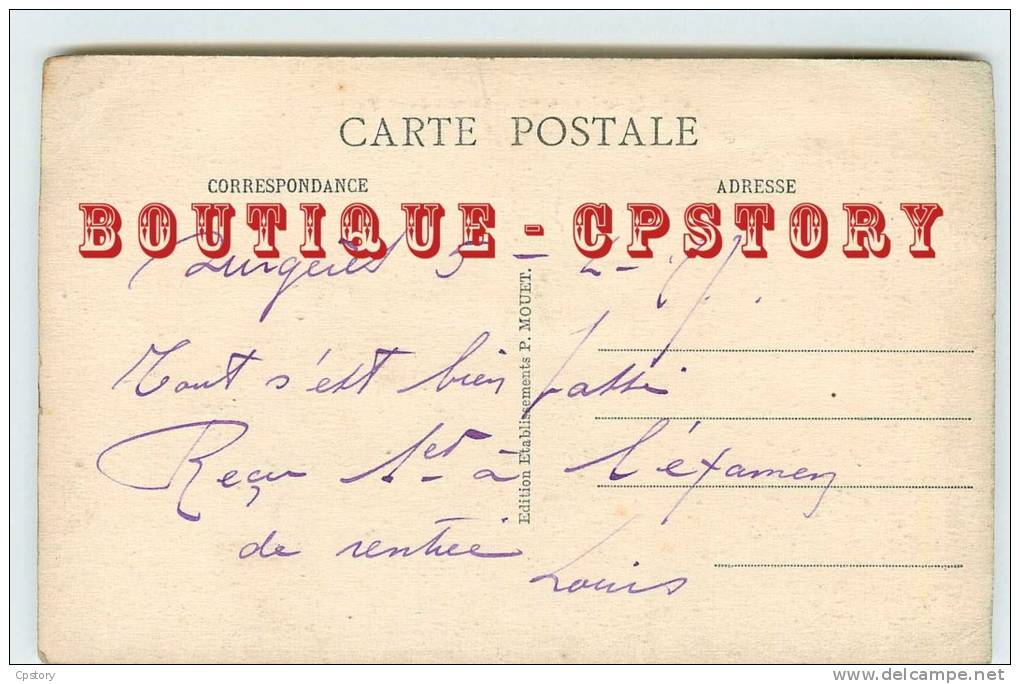 CARTE POSTALE
CORRESPONDANCE
ADRESSE
BOUTIQUE - CPSTORY
Surgères 5 - 2 -
Tout s'est bien passé
Reçu 1er à l'examen
de rentrée
Louis
Edition Etablissements P. MOUET.
Cpstory
delcampe.net